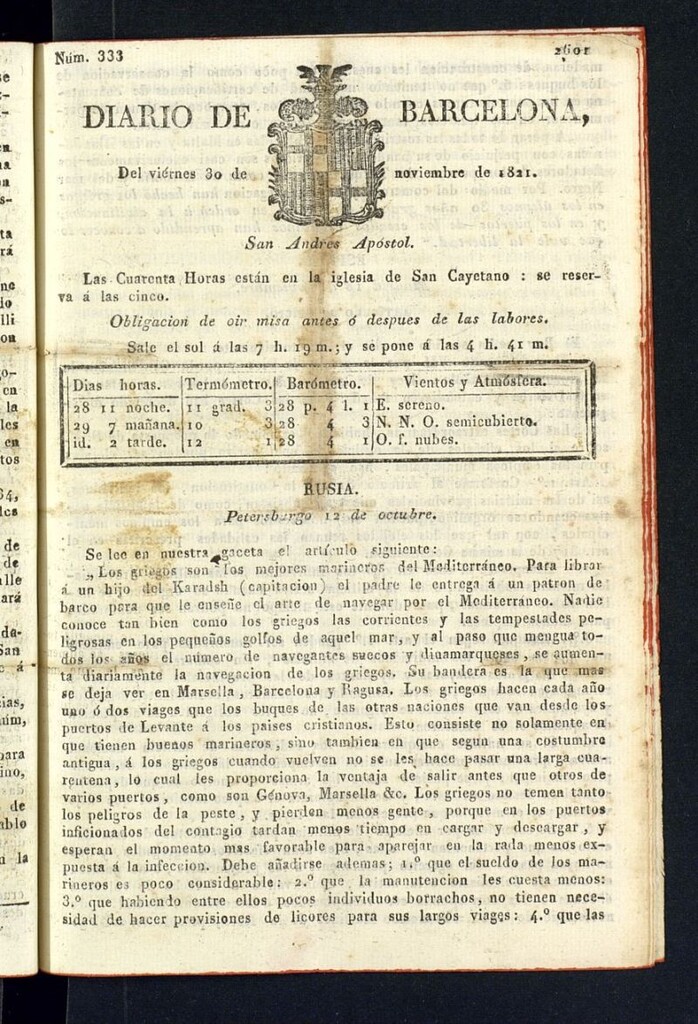 Núm. 333
2601
DIARIO DE BARCELONA,
Del viérnes 30 de noviembre de 1821.
San Andres Apóstol.
Las Cuarenta Horas están en la iglesia de San Cayetano : se reser-
va á las cinco.
Obligacion de oir misa antes ó despues de las labores.
Sale el sol á las 7 h. 19 m.; y se pone á las 4 h. 41 m.
Dias horas. Termómetro. Barómetro. Vientos y Atmósfera.
28 11 noche. 11 grad. 3 28 p. 4 l. 1 E. sereno.
29 7 mañana. 10 3 28 4 3 N. N. O. semicubierto.
id. 2 tarde. 12 1 28 4 1 O. f. nubes.
RUSIA.
Petersburgo 12 de octubre.
Se lee en nuestra gaceta el artículo siguiente:
„Los griegos son los mejores marineros del Mediterráneo. Para librar
á un hijo del Karadsh (capitacion) el padre le entrega á un patron de
barco para que le enseñe el arte de navegar por el Mediterraneo. Nadie
conoce tan bien como los griegos las corrientes y las tempestades pe-
ligrosas en los pequeños golfos de aquel mar, y al paso que mengua to-
dos los años el número de navegantes suecos y dinamarqueses, se aumen-
ta diariamente la navegacion de los griegos. Su bandera es la que mas
se deja ver en Marsella, Barcelona y Ragusa. Los griegos hacen cada año
uno ó dos viages que los buques de las otras naciones que van desde los
puertos de Levante á los paises cristianos. Esto consiste no solamente en
que tienen buenos marineros, sino tambien en que segun una costumbre
antigua, á los griegos cuando vuelven no se les hace pasar una larga cua-
rentena, lo cual les proporciona la ventaja de salir antes que otros de
varios puertos, como son Génova, Marsella &c. Los griegos no temen tanto
los peligros de la peste, y pierden menos gente, porque en los puertos
inficionados del contagio tardan menos tiempo en cargar y descargar, y
esperan el momento mas favorable para aparejar en la rada menos ex-
puesta á la infeccion. Debe añadirse ademas; 1.º que el sueldo de los ma-
rineros es poco considerable: 2.º que la manutencion les cuesta menos:
3.º que habiendo entre ellos pocos individuos borrachos, no tienen nece-
sidad de hacer provisiones de licores para sus largos viages: 4.º que las